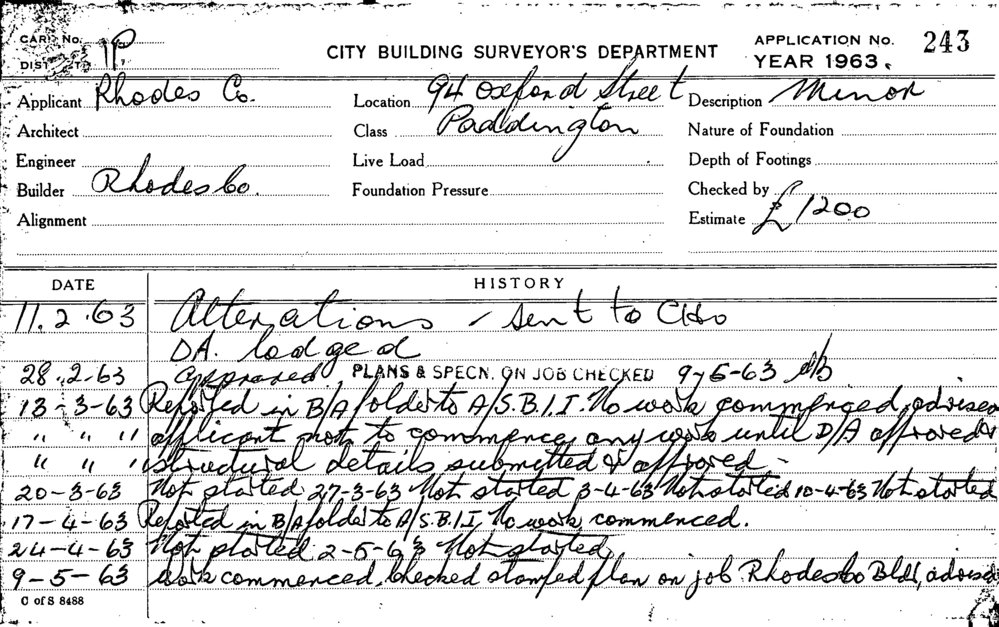 CARD No.
DISTRICT 1P
CITY BUILDING SURVEYOR'S DEPARTMENT
APPLICATION No. 243
YEAR 1963.
Applicant Rhodes Co. Location 94 Oxford Street Description Minor
Architect Class Paddington Nature of Foundation
Engineer Live Load Depth of Footings
Builder Rhodes Co. Foundation Pressure Checked by
Alignment Estimate £1200
DATE HISTORY
11.2.63 Alterations - sent to CHO
DA. lodged
28.2-63 approved PLANS & SPECN. ON JOB CHECKED 9-5-63
13-3-63 Reported in B/A folder to A/S.B.I.I. No work commenced, advised
" " " applicant not to commence any work until D/A approved &
" " " structural details submitted & approved -
20-3-63 Not started 27-3-63 Not started 3-4-63 Not started 10-4-63 Not started
17-4-63 Reported in B/A folder to A/S.B.I.I No work commenced.
24-4-63 Not started 2-5-63 Not started
9-5-63 Work commenced, checked stamped plan on job Rhodes Co Bldr, advised
C of S 8488